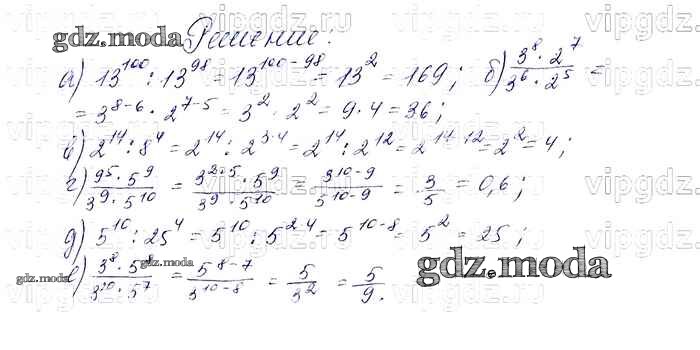 gdz.moda Решение:
а) 13^100 : 13^98 = 13^(100-98) = 13^2 = 169; б) (3^8 · 2^7)/(3^6 · 2^5) =
= 3^(8-6) · 2^(7-5) = 3^2 · 2^2 = 9 · 4 = 36;
в) 2^14 : 8^4 = 2^14 : 2^(3·4) = 2^14 : 2^12 = 2^(14-12) = 2^2 = 4;
г) (9^5 · 5^9)/(3^9 · 5^10) = (3^(2·5) · 5^9)/(3^9 · 5^10) = 3^(10-9)/5^(10-9) = 3/5 = 0,6;
д) 5^10 : 25^4 = 5^10 : 5^(2·4) = 5^(10-8) = 5^2 = 25;
е) (3^8 · 5^8)/(3^10 · 5^7) = 5^(8-7)/3^(10-8) = 5/3^2 = 5/9.
gdz.moda
gdz.moda
gdz.moda
vipgdz.ru
vipgdz.ru
vipgdz.ru
vipgdz.ru